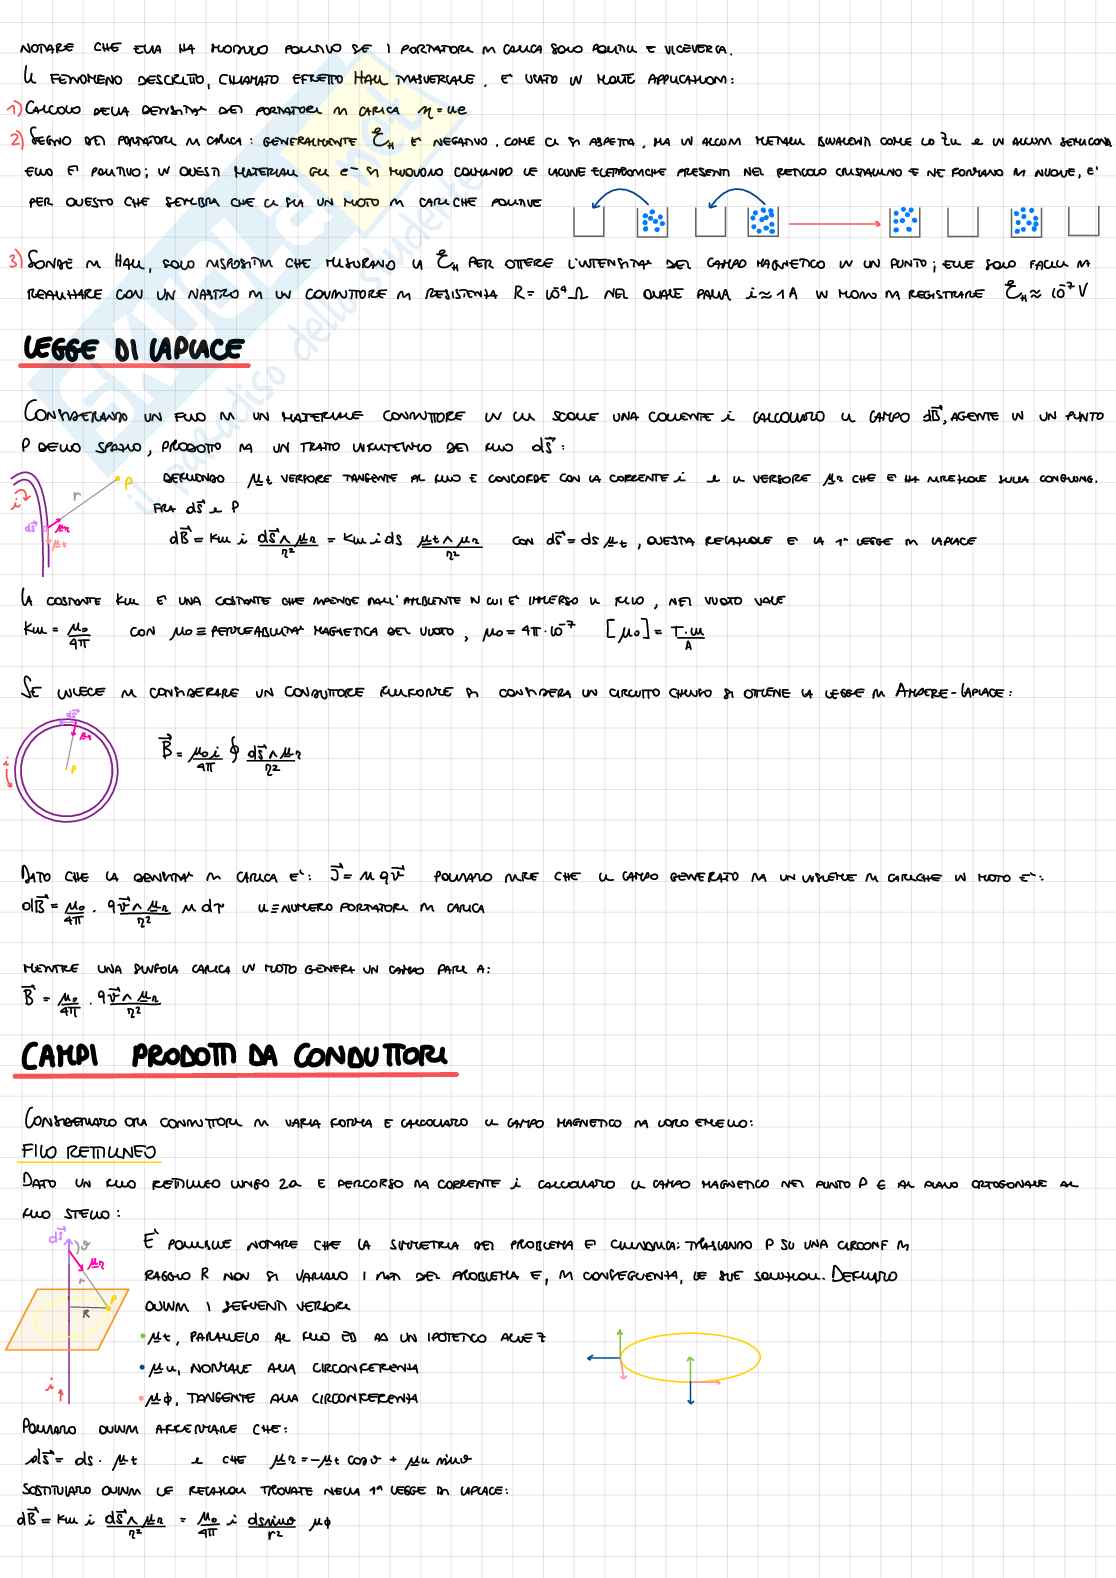 NOTARE CHE ESSA HA MODULO POSITIVO SE I PORTATORI DI CARICA SONO POSITIVI E VICEVERSA.
IL FENOMENO DESCRITTO, CHIAMATO EFFETTO HALL TRASVERSALE, E' USATO IN MOLTE APPLICAZIONI:
1) CALCOLO DELLA DENSITA' DEI PORTATORI DI CARICA n = ne
2) SEGNO DEI PORTATORI DI CARICA: GENERALMENTE ℰH E' NEGATIVO, COME CI SI ASPETTA, MA IN ALCUNI METALLI BIVALENTI COME LO Zn E IN ALCUNI SEMICOND
ESSO E' POSITIVO; IN QUESTI MATERIALI GLI e⁻ SI MUOVONO COLMANDO LE LACUNE ELETTRONICHE PRESENTI NEL RETICOLO CRISTALLINO E NE FORMANO DI NUOVE, E'
PER QUESTO CHE SEMBRA CHE CI SIA UN MOTO DI CARICHE POSITIVE
3) SONDE DI HALL, SONO DISPOSITIVI CHE MISURANO LA ℰH PER OTTERE L'INTENSITA' DEL CAMPO MAGNETICO IN UN PUNTO; ESSE SONO FACILI DI
REALIZZARE CON UN NASTRO DI UN CONDUTTORE DI RESISTENZA R = 10⁻⁴ Ω NEL QUALE PASSA i ≈ 1A IN MODO DI REGISTRARE ℰH ≈ 10⁻⁷ V
LEGGE DI LAPLACE
CONSIDERANDO UN FILO DI UN MATERIALE CONDUTTORE IN CUI SCORRE UNA CORRENTE i CALCOLIAMO IL CAMPO dB⃗, AGENTE IN UN PUNTO
P DELLO SPAZIO, PRODOTTO DA UN TRATTO INFINITESIMO DEL FILO ds⃗:
DEFINENDO μt VERSORE TANGENTE AL FILO E CONCORDE CON LA CORRENTE i E IL VERSORE μr CHE E' HA DIREZIONE SULLA CONGIUNG.
FRA ds⃗ E P
i r P ds⃗ μr μt
dB⃗ = Km i ds⃗ ∧ μr / r² = Km i ds μt ∧ μr / r² CON ds⃗ = ds μt, QUESTA RELAZIONE E' LA 1ª LEGGE DI LAPLACE
LA COSTANTE Km E' UNA COSTANTE CHE DIPENDE DALL'AMBIENTE IN CUI E' IMMERSO IL FILO, NEL VUOTO VALE
Km = μ₀ / 4π CON μ₀ ≡ PERMEABILITA' MAGNETICA DEL VUOTO, μ₀ = 4π·10⁻⁷ [μ₀] = T·m / A
SE INVECE DI CONSIDERARE UN CONDUTTORE FILIFORME SI CONSIDERA UN CIRCUITO CHIUSO SI OTTIENE LA LEGGE DI AMPERE-LAPLACE:
ds⃗ μr i P
B⃗ = μ₀ i / 4π ∮ ds⃗ ∧ μr / r²
DATO CHE LA DENSITA' DI CARICA E': J⃗ = n q v⃗ POSSIAMO DIRE CHE IL CAMPO GENERATO DA UN INSIEME DI CARICHE IN MOTO E':
dB⃗ = μ₀ / 4π · q v⃗ ∧ μr / r² n dτ n ≡ NUMERO PORTATORI DI CARICA
MENTRE UNA SINGOLA CARICA IN MOTO GENERA UN CAMPO PARI A:
B⃗ = μ₀ / 4π · q v⃗ ∧ μr / r²
CAMPI PRODOTTI DA CONDUTTORI
CONSIDERIAMO ORA CONDUTTORI DI VARIA FORMA E CALCOLIAMO IL CAMPO MAGNETICO DI LORO EMESSO:
FILO RETTILINEO
DATO UN FILO RETTILINEO LUNGO 2a E PERCORSO DA CORRENTE i CALCOLIAMO IL CAMPO MAGNETICO NEL PUNTO P ∈ AL PIANO ORTOGONALE AL
FILO STESSO:
ds⃗ θ μr r P R i
E' POSSIBILE NOTARE CHE LA SIMMETRIA DEL PROBLEMA E' CILINDRICA: TRASLANDO P SU UNA CIRCONF DI
RAGGIO R NON SI VARIANO I DATI DEL PROBLEMA E, DI CONSEGUENZA, LE SUE SOLUZIONI. DEFINIAMO
QUINDI I SEGUENTI VERSORI
• μt, PARALLELO AL FILO ED AD UN IPOTETICO ASSE Z
• μn, NORMALE ALLA CIRCONFERENZA
• μϕ, TANGENTE ALLA CIRCONFERENZA
POSSIAMO QUINDI AFFERMARE CHE:
ds⃗ = ds · μt E CHE μr = -μt cosθ + μn sinθ
SOSTITUIAMO QUINDI LE RELAZIONI TROVATE NELLA 1ª LEGGE DI LAPLACE:
dB⃗ = Km i ds⃗ ∧ μr / r² = μ₀ / 4π i ds sinθ / r² μϕ